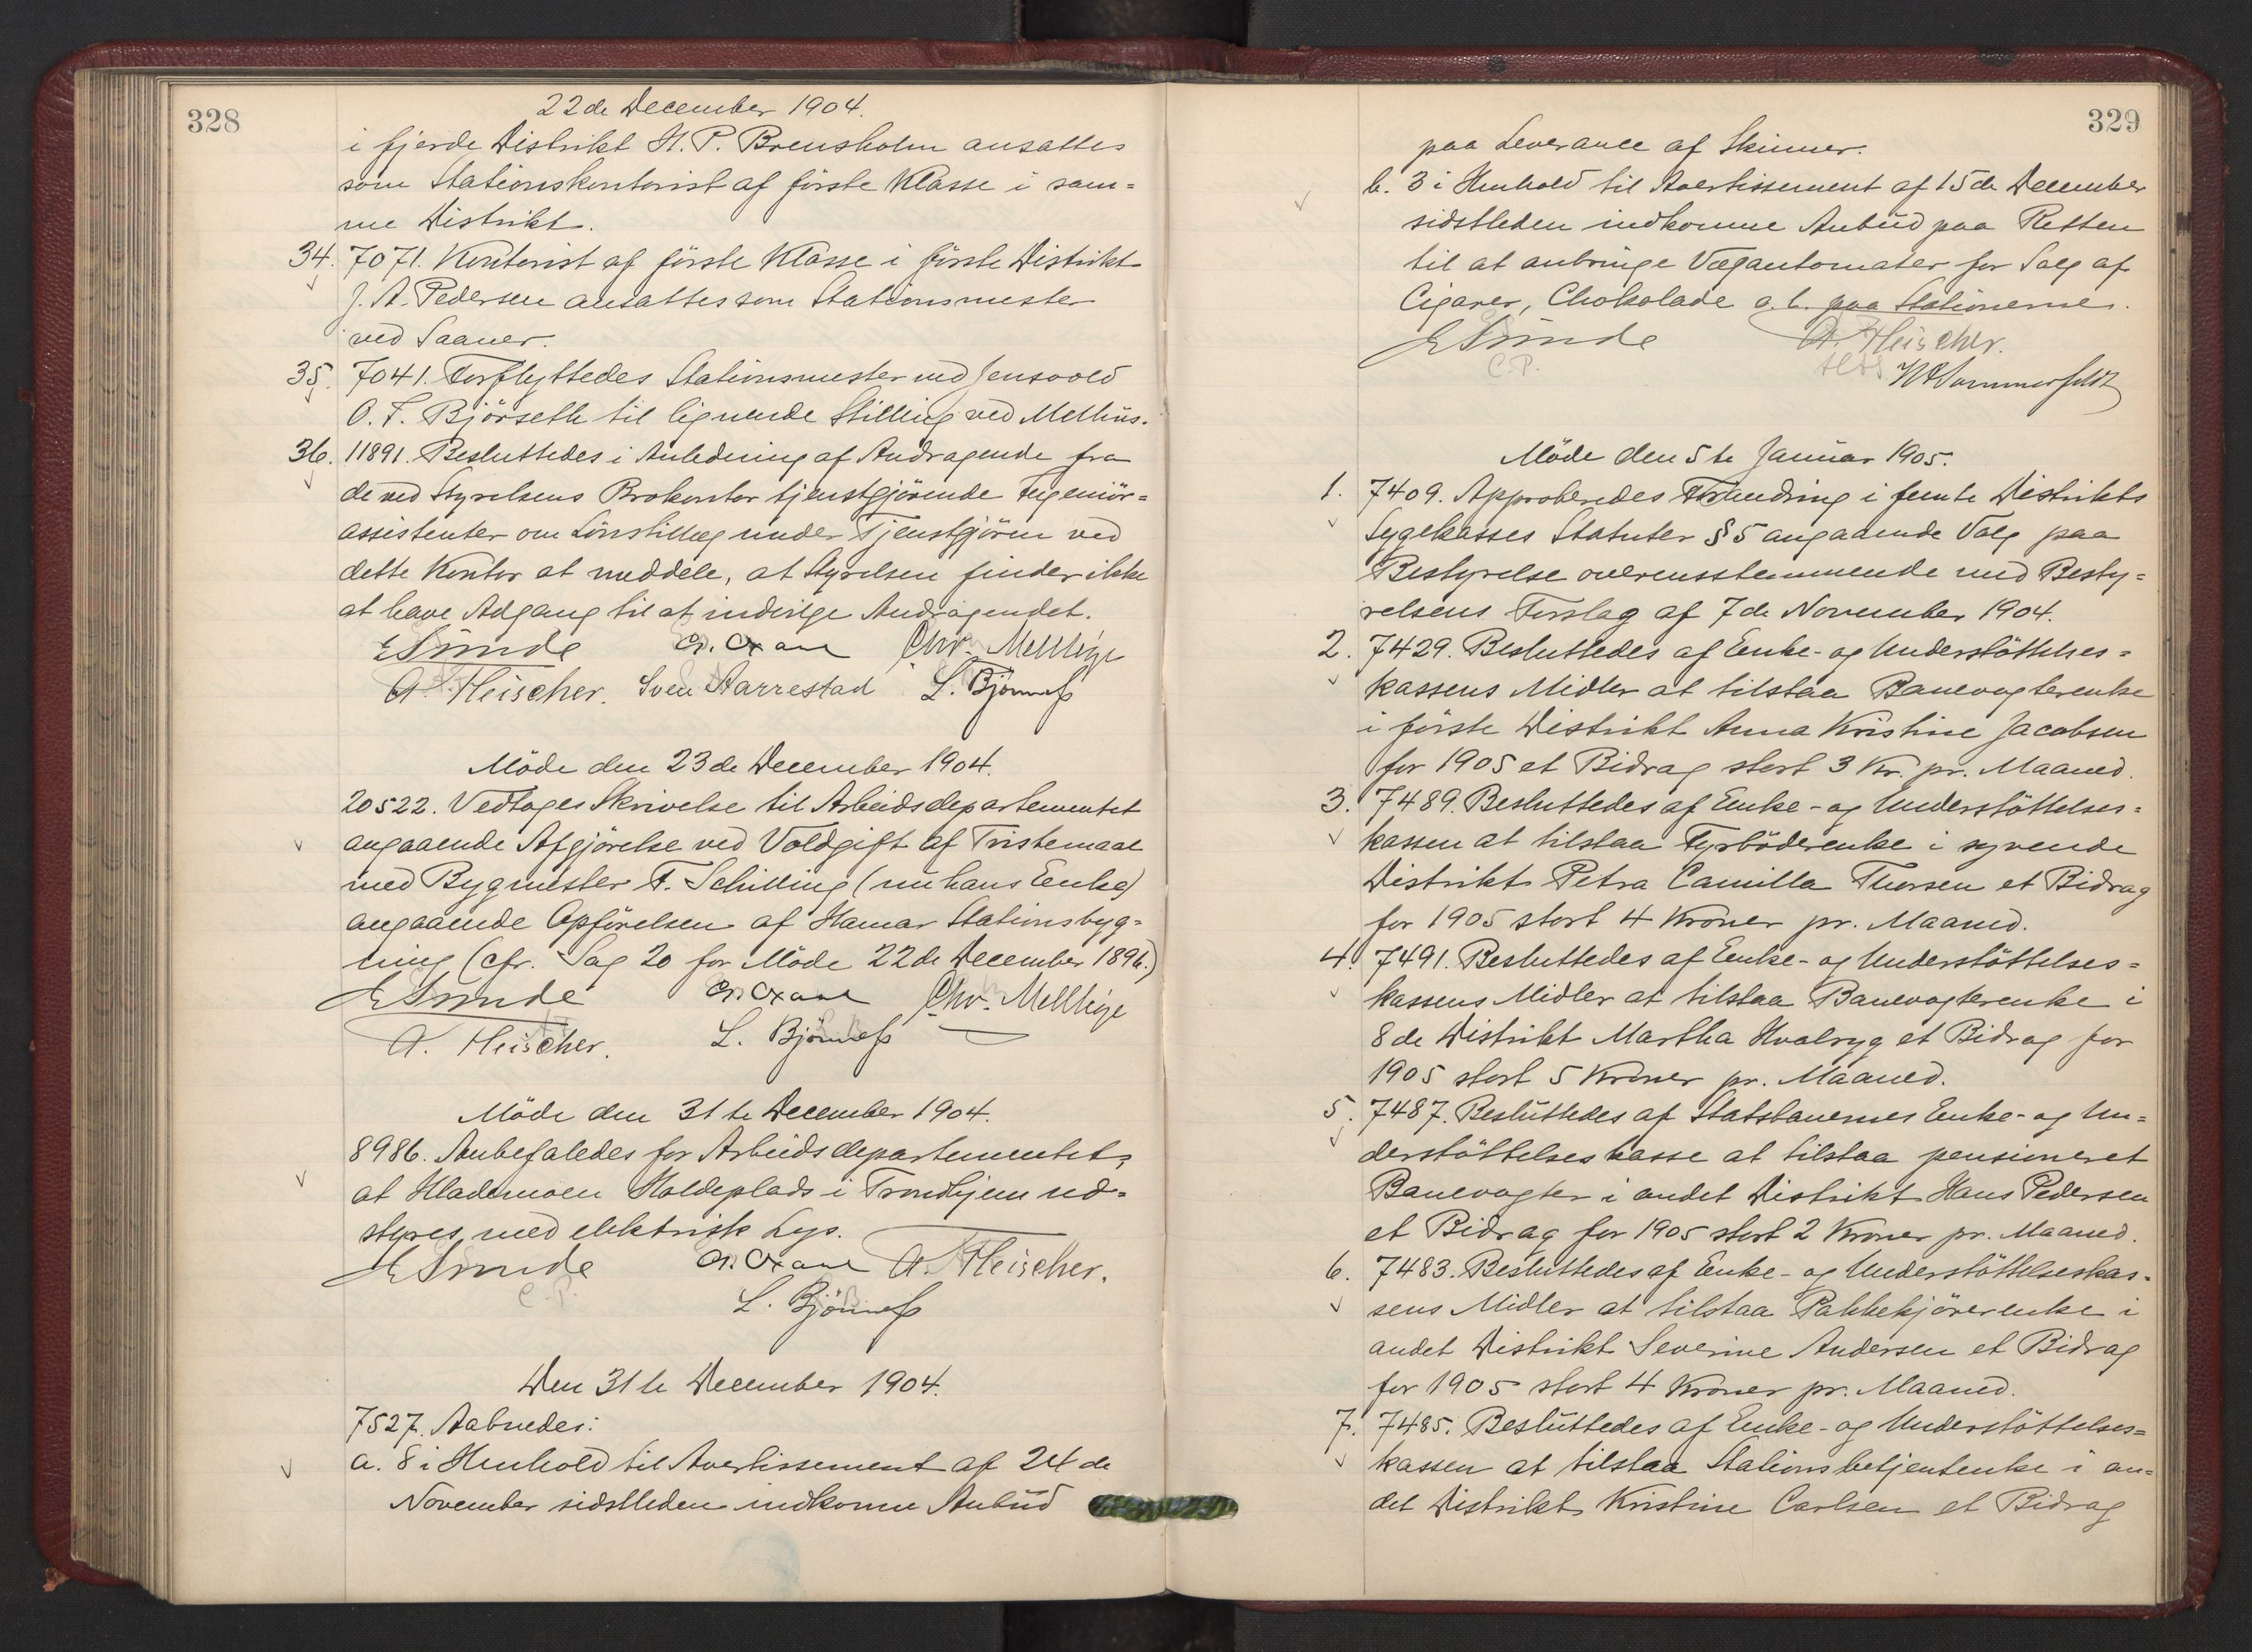 328
22de December 1904.
i fjerde Distrikt H. P. Brensholm ansattes
som Stationskontorist af förste Klasse i sam=
me Distrikt.
34. 7071. Kontorist af förste Klasse i förste Distrikt
J. A. Pedersen ansattes som Stationsmester
ved Saaner.
35. 7041. Forflyttedes Stationsmester ved Jensvold
O. F. Björseth til lignende Stilling ved Melhus.
36. 11891. Besluttedes i Anledning af Andragende fra
de ved Styrelsens Brokontor tjenstgjörende Ingeniör=
assistenter om Lönstillæg under Tjenstgjören ved
dette Kontor at meddele, at Styrelsen finder ikke
at have Adgang til at indvilge Andragendet.
E Sunde Chr. Mellbÿe
A. Fleischer. Sven Aarrestad L. Björnnefs
Möde den 23de December 1904.
20522. Vedtoges Skrivelse til Arbeidsdepartementet
angaaende Afgjörelse ved Voldgift af Tvistemaal
med Bygmester F. Schilling (nu hans Enke)
angaaende Opförelsen af Hamar Stationsbyg=
ning (cfr. Sag 20 for Möde 22de December 1896.)
E Sunde Chr. Mellbÿe
A. Fleischer. L. Björnnefs
Möde den 31te December 1904.
8986. Anbefaledes for Arbeidsdepartementet,
at Hlademoen Holdeplads i Trondhjem ud=
styres med elektrisk Lys.
E Sunde A. Fleischer.
C. P.
L. Björnnefs
Den 31te December 1904.
7527. Aabnedes:
a. 8 i Henhold til Avertissement af 24de
November sidstleden indkomne Anbud
329
paa Leverance af Skinner.
b. 3 i Henhold til Avertissement af 15de December
sidstleden indkomne Anbud paa Retten
til at anbringe Vægautomater for Salg af
Cigarer, Chokolade o. l. paa Stationerne.
E Sunde A. Fleischer.
C. P. W Sommerfeldt
Möde den 5te Januar 1905.
1. 7409. Approberedes Forandring i femte Distrikts
Sygekasses Statuter § 5 angaaende Valg paa
Bestyrelse overensstemmende med Besty=
relsens Forslag af 7de November 1904.
2. 7429. Besluttedes af Enke- og Understöttelses=
kassens Midler at tilstaa Banevogterenke
i förste Distrikt Anna Kristine Jacobsen
for 1905 et Bidrag stort 3 Kr. pr. Maaned.
3. 7489. Besluttedes af Enke- og Understöttelses=
kassen at tilstaa Fyrböderenke i syvende
Distrikt Petra Camilla Thorsen et Bidrag
for 1905 stort 4 Kroner pr. Maaned.
4. 7491. Besluttedes af Enke- og Understöttelses=
kassens Midler at tilstaa Banevogterenke i
8de Distrikt Martha Hvalryg et Bidrag for
1905 stort 5 Kroner pr. Maaned.
5. 7487. Besluttedes af Statsbanernes Enke- og Un=
derstöttelseskasse at tilstaa pensioneret
Banevogter i andet Distrikt Hans Pedersen
et Bidrag for 1905 stort 2 Kroner pr. Maaned.
6. 7483. Besluttedes af Enke- og Understöttelseskas=
sens Midler at tilstaa Pakkekjörerenke i
andet Distrikt Severine Andersen et Bidrag
for 1905 stort 4 Kroner pr. Maaned.
7. 7485. Besluttedes af Enke- og Understöttelses=
kassen at tilstaa Stationsbetjentenke i an=
det Distrikt Kristine Carlsen et Bidrag